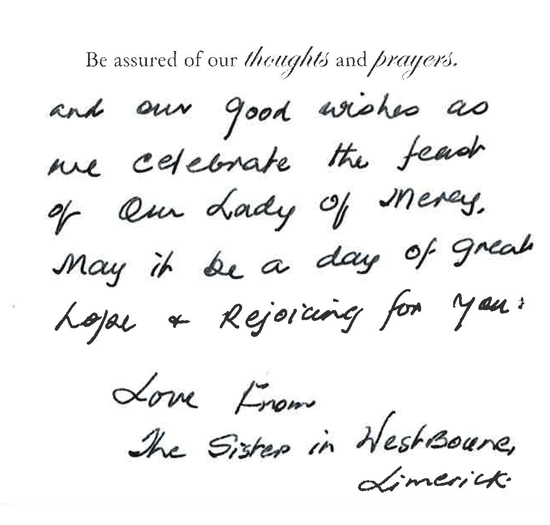 Be assured of our thoughts and prayers.
and our good wishes as
we celebrate the feast
of Our Lady of Mercy.
May it be a day of great
hope & Rejoicing for you:
Love From
The Sisters in WestBourne,
Limerick.